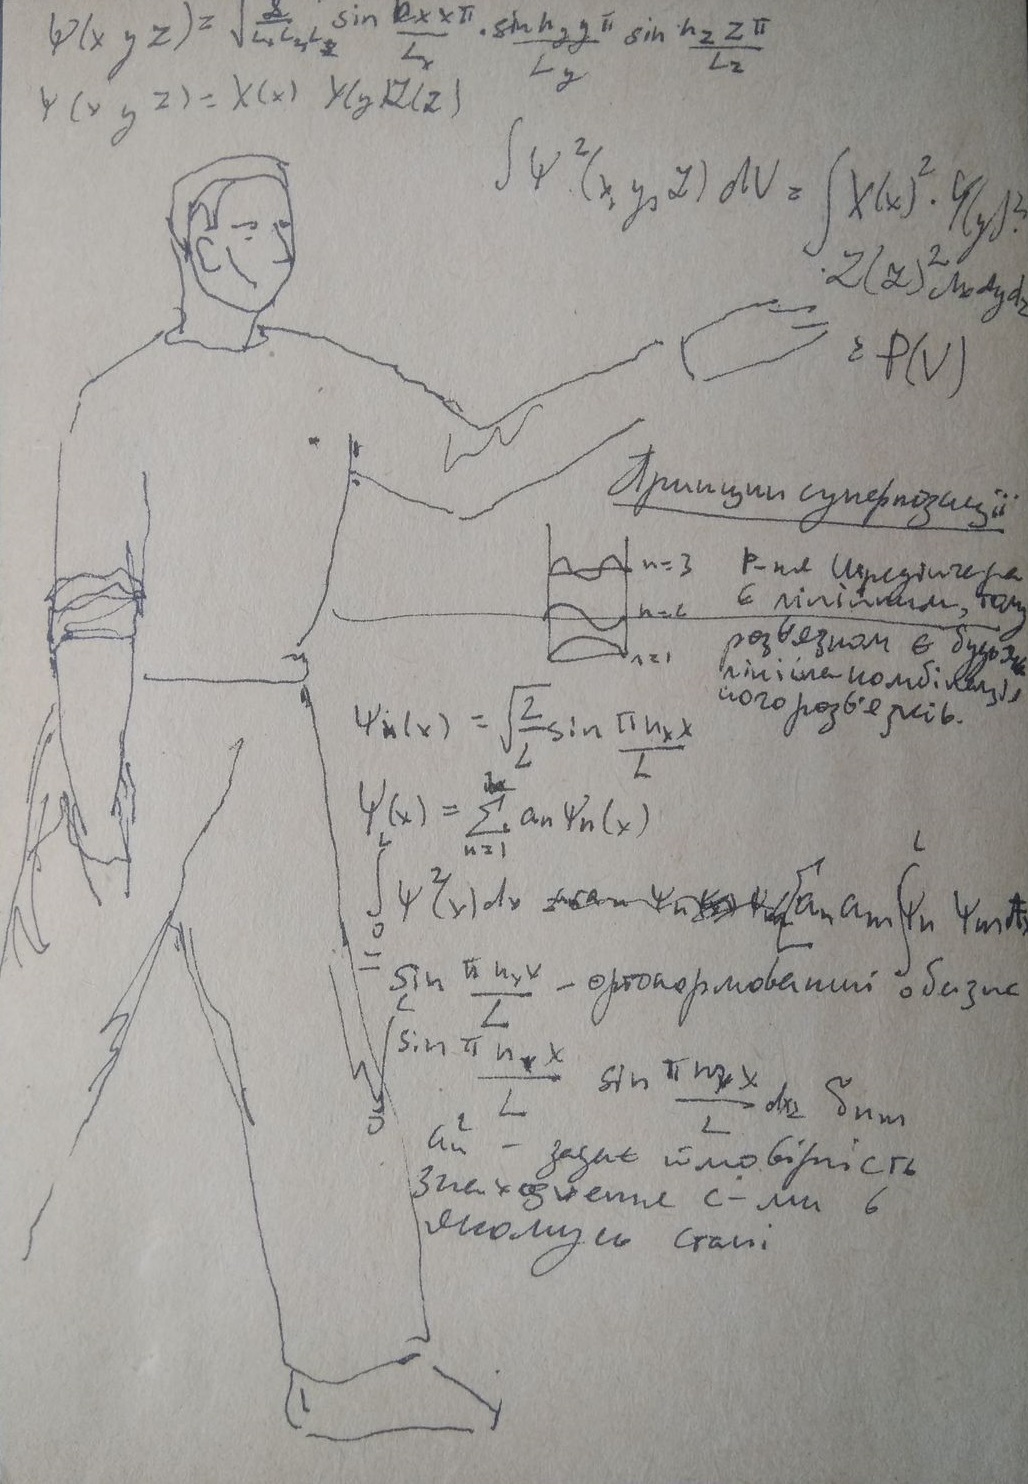 Ψ(x y z) = √8/LxLyLz sin nx x π/Lx · sin ny y π/Ly sin nz z π/Lz
Ψ(x y z) = X(x) Y(y) Z(z)
∫Ψ²(x, y, z) dV = ∫X(x)² · Y(y)² ·
· Z(z)² dx dy dz
= P(V)
Принцип суперпозиції
n=3
n=2
n=1
Р-ня Шредінгера
є лінійним, тому
розв'язком є будь-яка
лінійна комбінація
його розв'язків.
Ψn(x) = √2/L sin πnₓx/L
Ψ(x) = ∑ n=1 anΨn(x)
∫₀ᴸ Ψ²(x)dx = ∑ an am ∫₀ᴸ Ψn Ψm dx
sin πnₓx/L – ортонормований базис
∫₀ᴸ sin πnₓx/L sin πmₓx/L dx = δnm
an² – задає ймовірність
знаходження с-ми в
якомусь стані